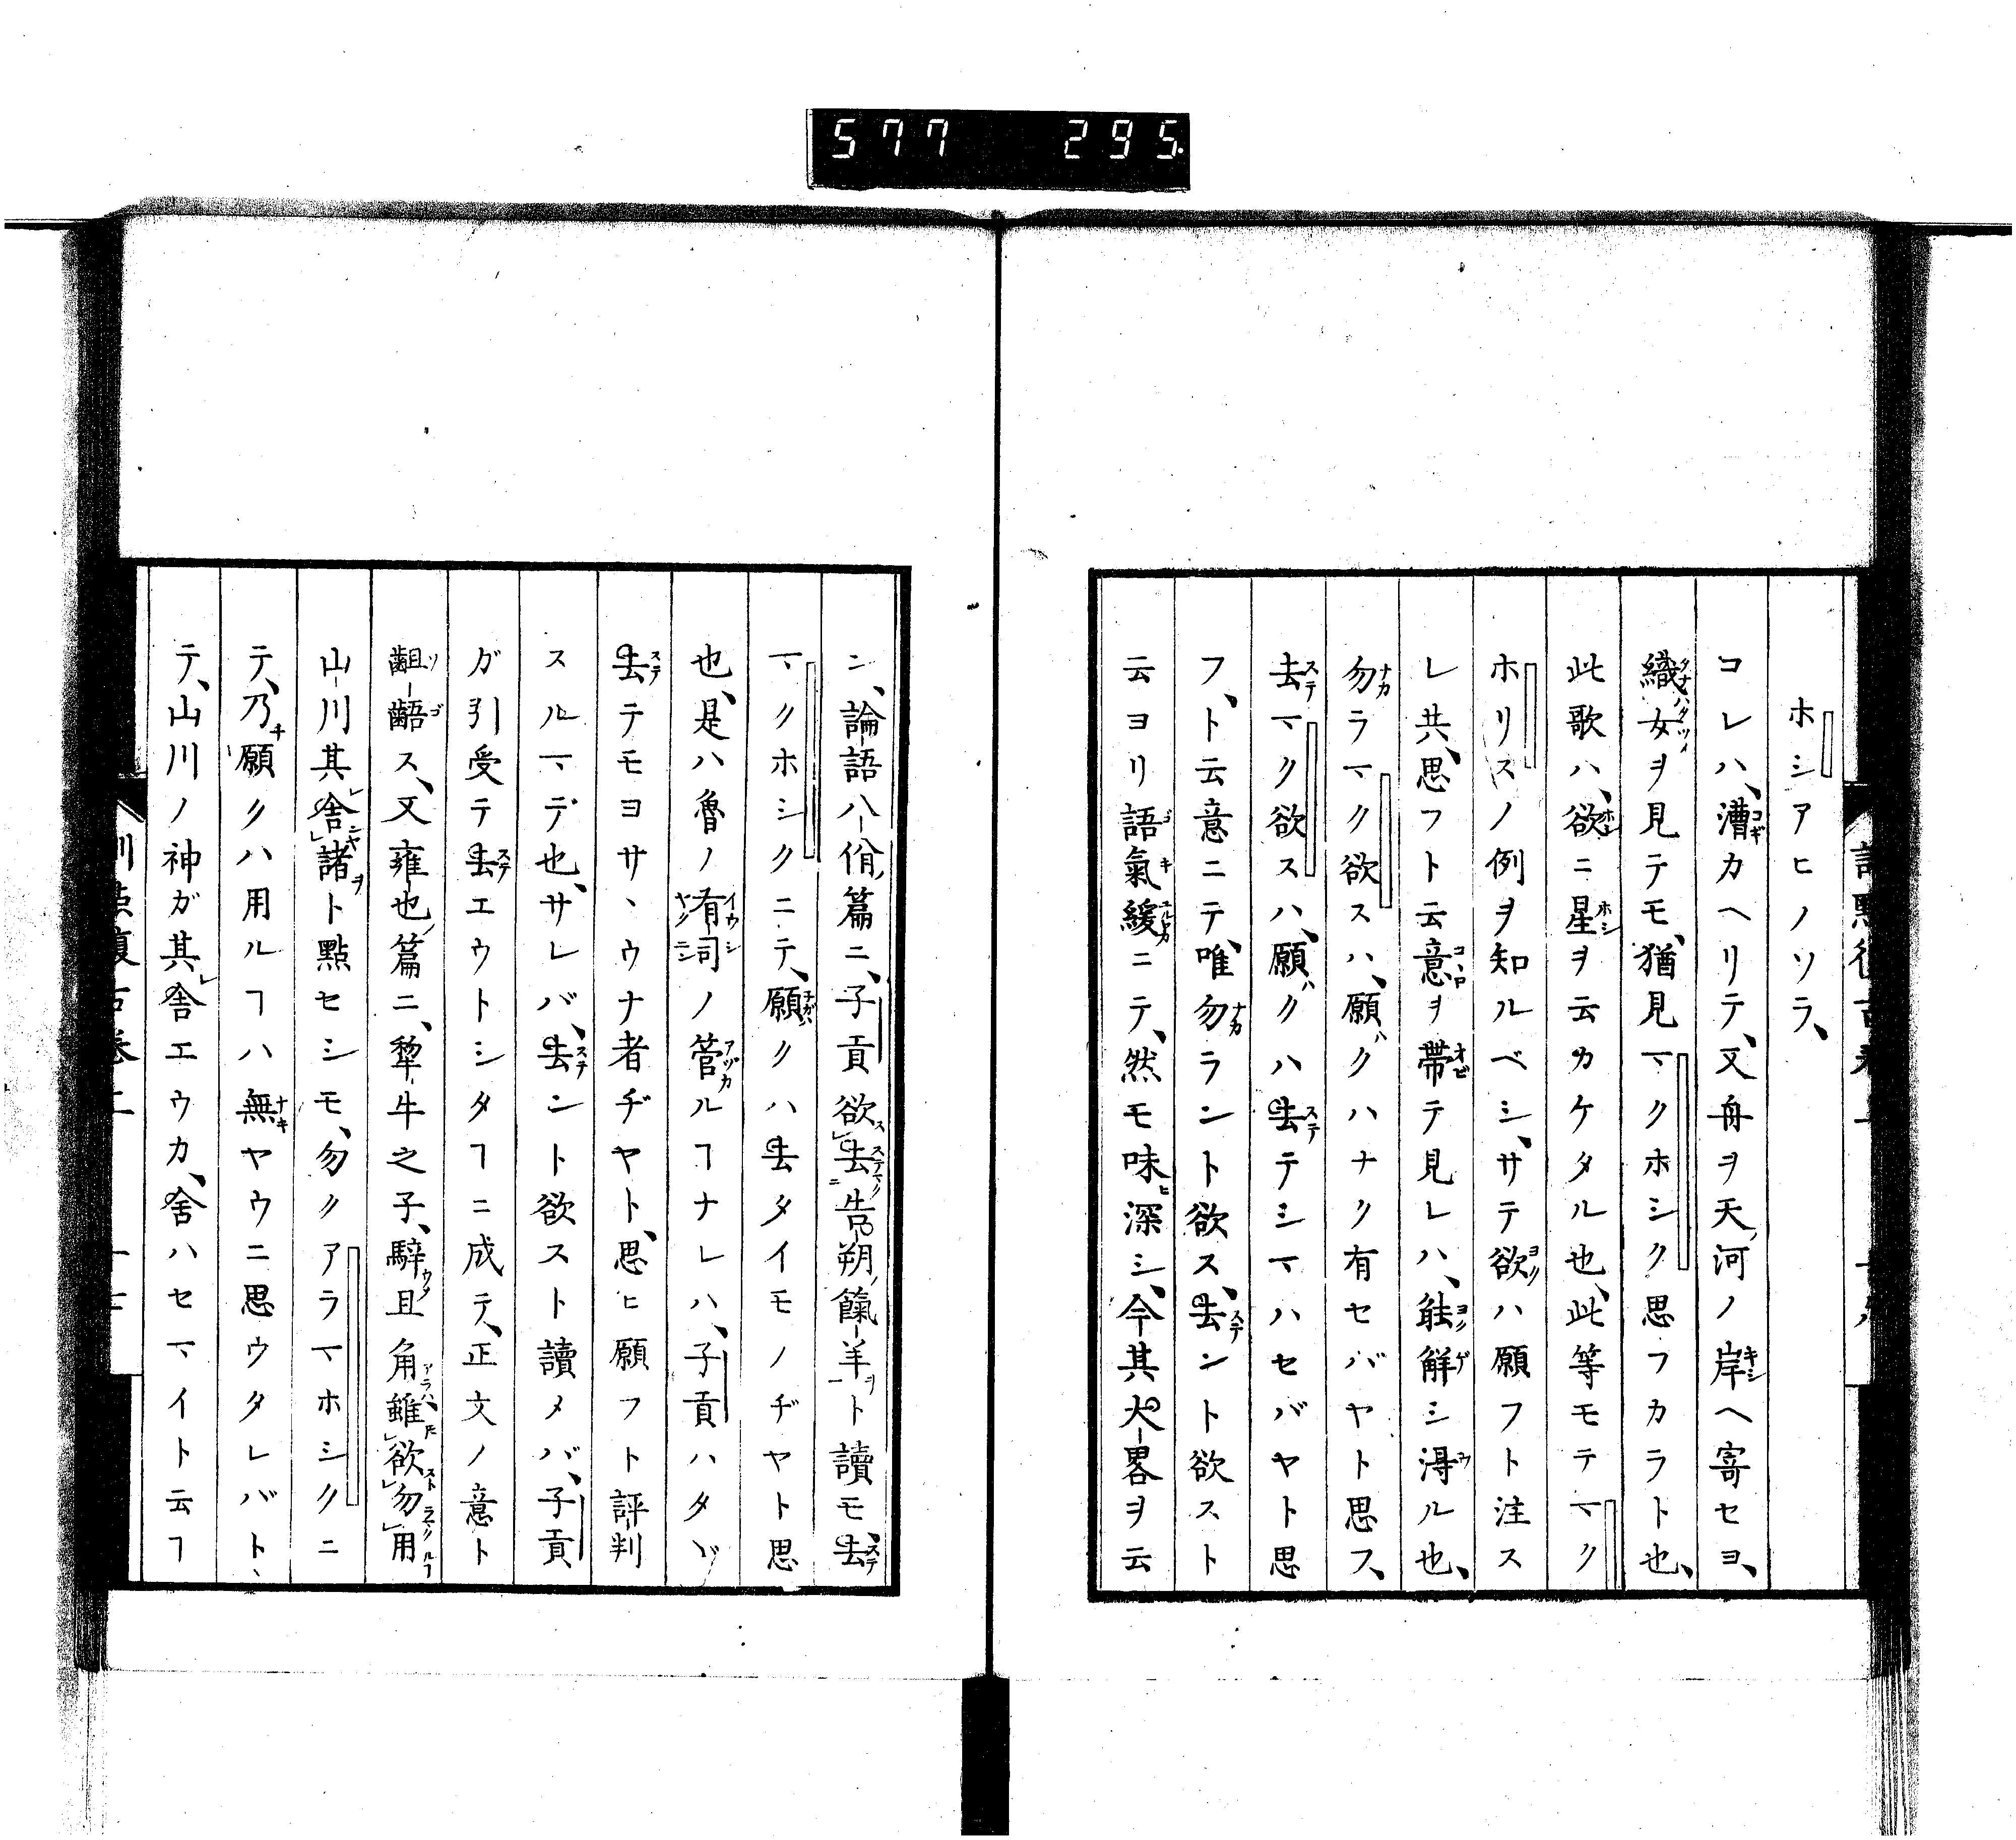 577 295.
ホシアヒノソラ、
コレハ、漕カヘリテ、又舟ヲ天ノ河ノ岸ヘ寄セヨ、
織女ヲ見テモ、猶見マクホシク思フカラト也、
此歌ハ、欲ニ星ヲ云カケタル也、此等モテマク
ホリスノ例ヲ知ルベシ、サテ欲ハ願フト注ス
レ共、思フト云意ヲ帶テ見レハ、能解シ得ル也、
勿ラマク欲スハ、願クハナク有セバヤト思フ、
去マク欲スハ、願クハ去テシマハセバヤト思
フ、ト云意ニテ、唯勿ラント欲ス、去ント欲スト
云ヨリ語氣緩ニテ、然モ味深シ、今其大畧ヲ云
ン、論語八佾篇ニ、子貢欲去告朔ノ餼羊ヲト讀モ、去
マクホシクニテ、願クハ去タイモノヂヤト思
也、是ハ魯ノ有司ノ管ルヿナレハ、子貢ハタヾ
去テモヨサヽウナ者ヂヤト、思ヒ願フト評判
スルマデ也、サレバ、去ント欲スト讀メバ、子貢
ガ引受テ去エウトシタヿニ成テ、正文ノ意ト
齟齬ス、又雍也篇ニ、犂牛之子、騂且角雖欲勿用
山川其舍諸ト點セシモ、勿クアラマホシクニ
テ、乃願クハ用ルヿハ無ヤウニ思ウタレバト、
テ、山川ノ神ガ其舍エウカ、舍ハセマイト云ヿ